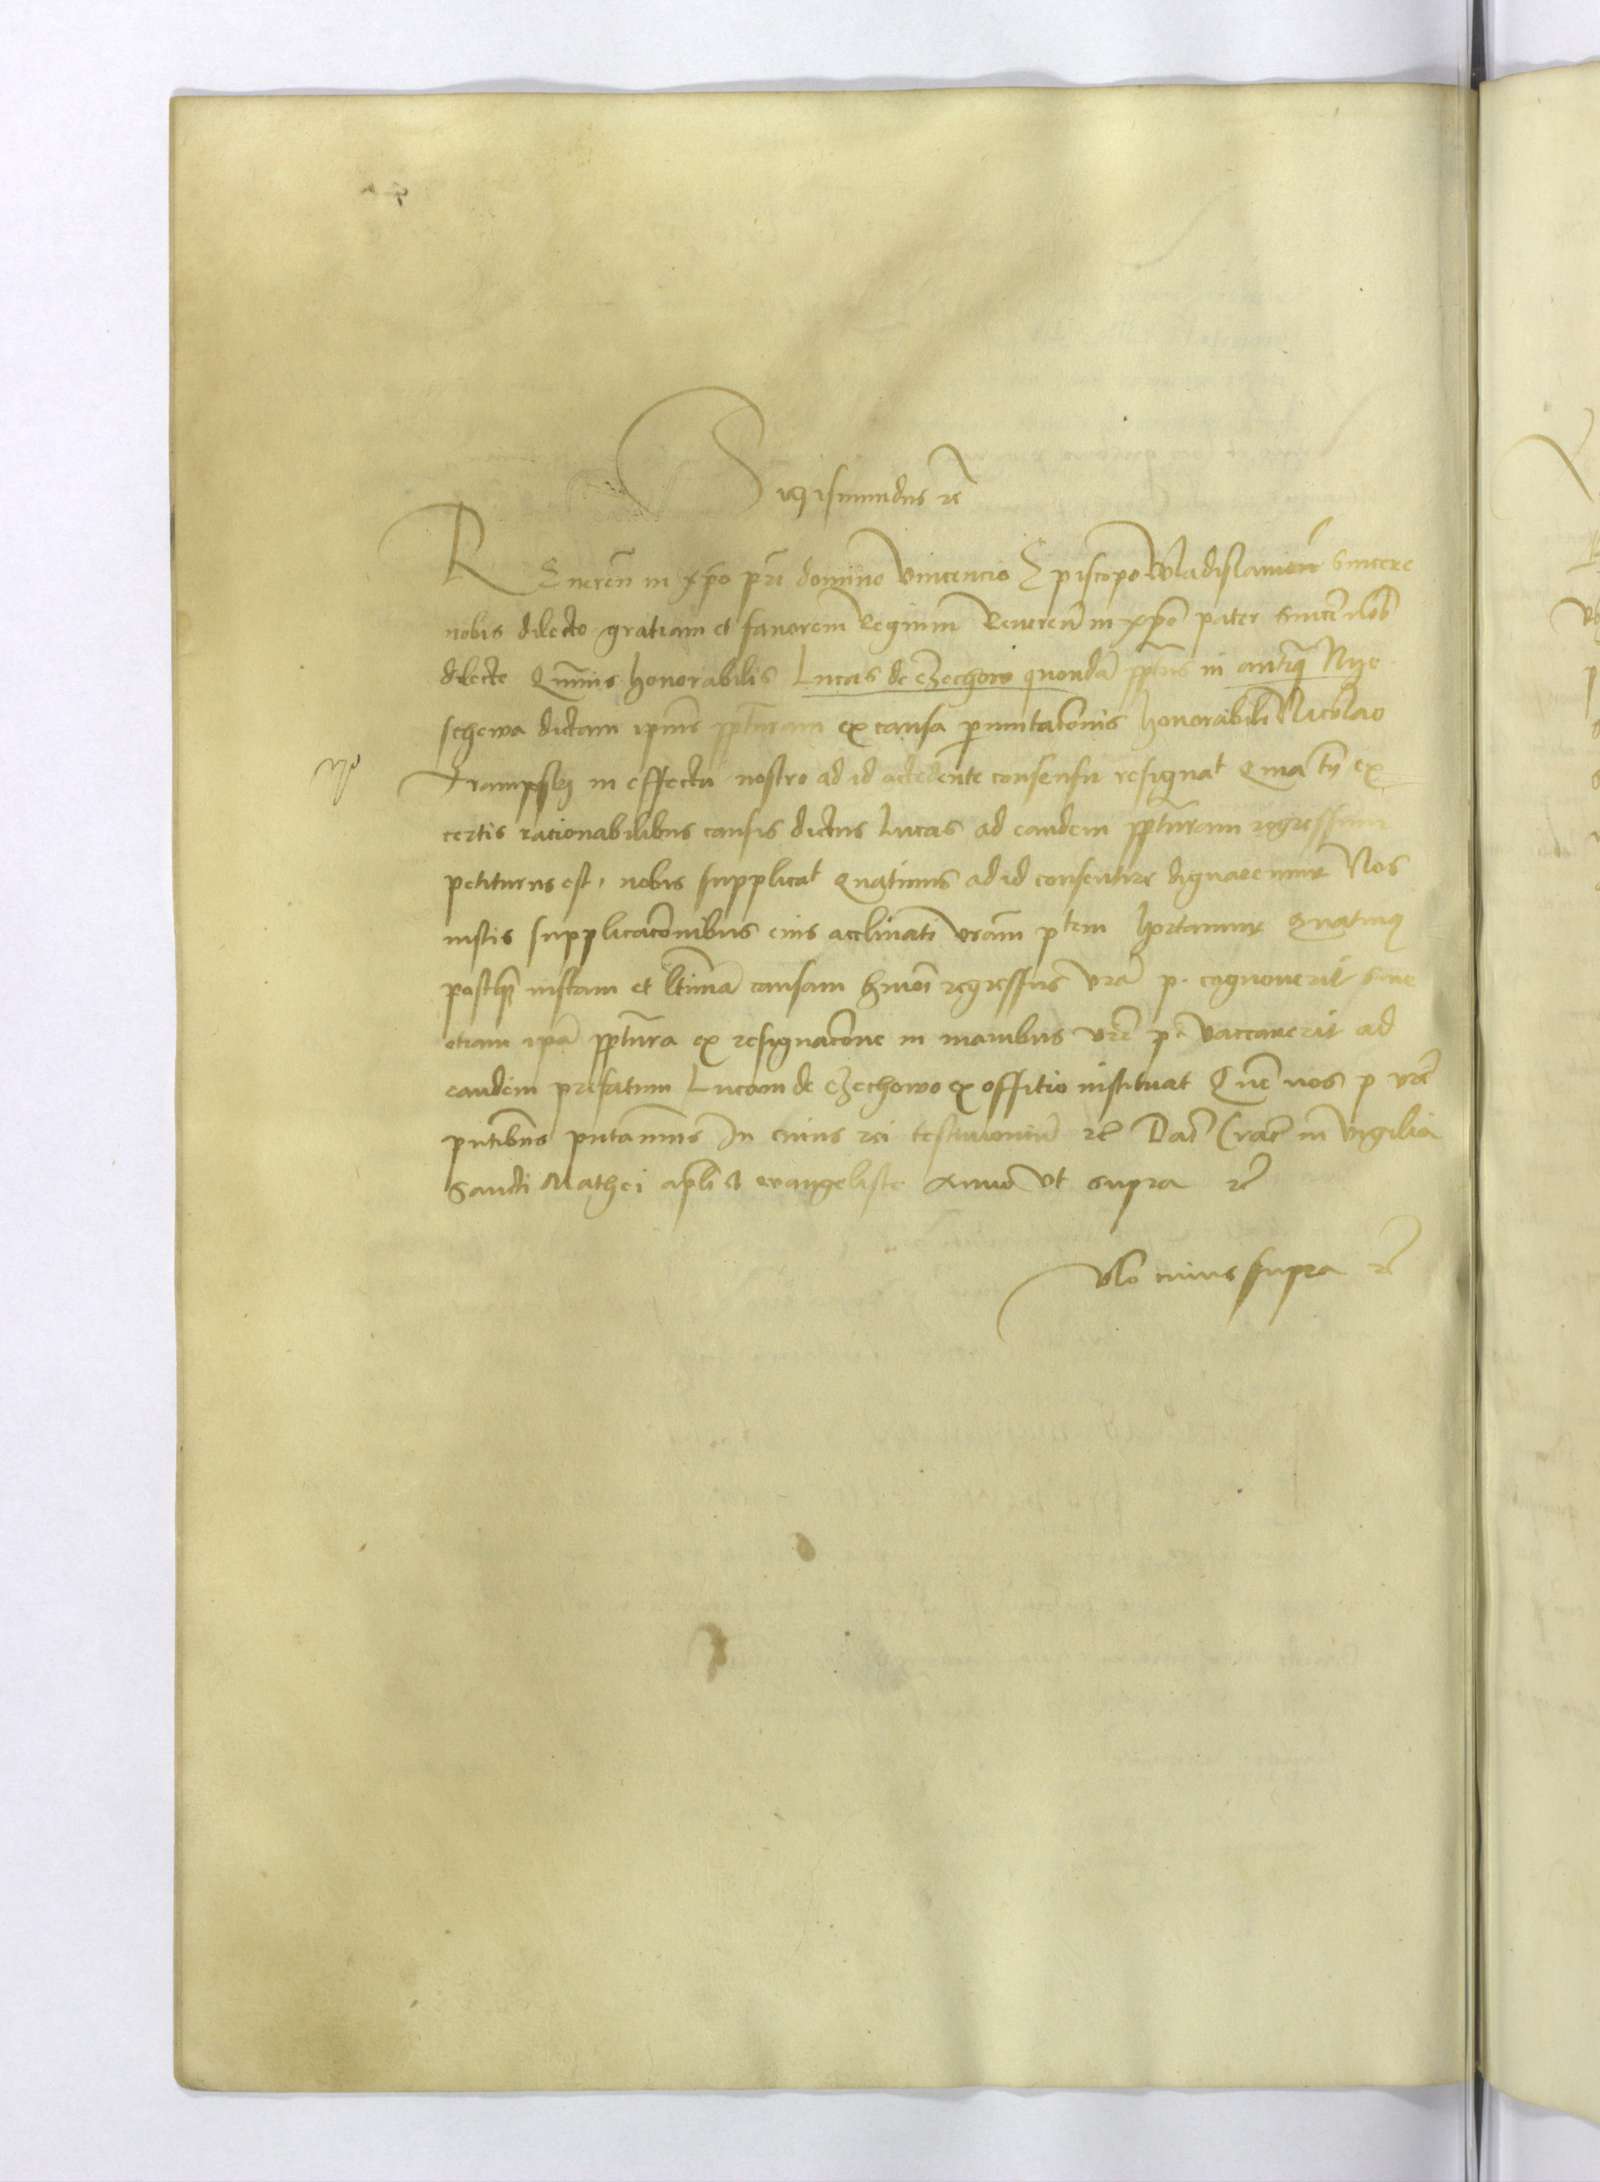 Sigismundus rc̃
REueren̄ in xp̄o pr̄i domino Vincencio Episcopo Wladislauien̄ sincere
nobis dilecto gratiam et fauorem Regium Reueren̄ in xp̄o pater sincē nob̄
dilecte Qm̄uis honorabilis Lucas de Czechow quondā pp̄tus in antiq̄ Nye
schewa dictam ipius pp̄turam ex causa p̄mutac̄onis honorabili Nicolao
Trampsky in effectu nostro ad id accedente consensu resignat Quia tn̄ ex
certis racionabilibus causis dictus Lucas ad eandem pp̄turam regressum
petiturus est, nobis supplicat Quatinus ad id consentire dignaremur Nos
iustis supplicac̄onibus eius acclinati vr̄am ptem hortamur Quatinꝫ
postq̄ iustam et l̄timā causam hmōi regressus vr̄a p. cognouerit siue
etiam ipā pp̄tura ex resignac̄one in manibus vr̄e p. vaccauerit ad
eandem prefatum Lucam de Czechowo ex offitio instituat Quē nos p vr̄e
pn̄tibus pn̄tamus In cuius rei testimoniū rc̃ Dat̄ Crac̄ in vigilia
Sancti Mathei apl̄i et euangeliste Anno vt supra rc̃
supra rc̃